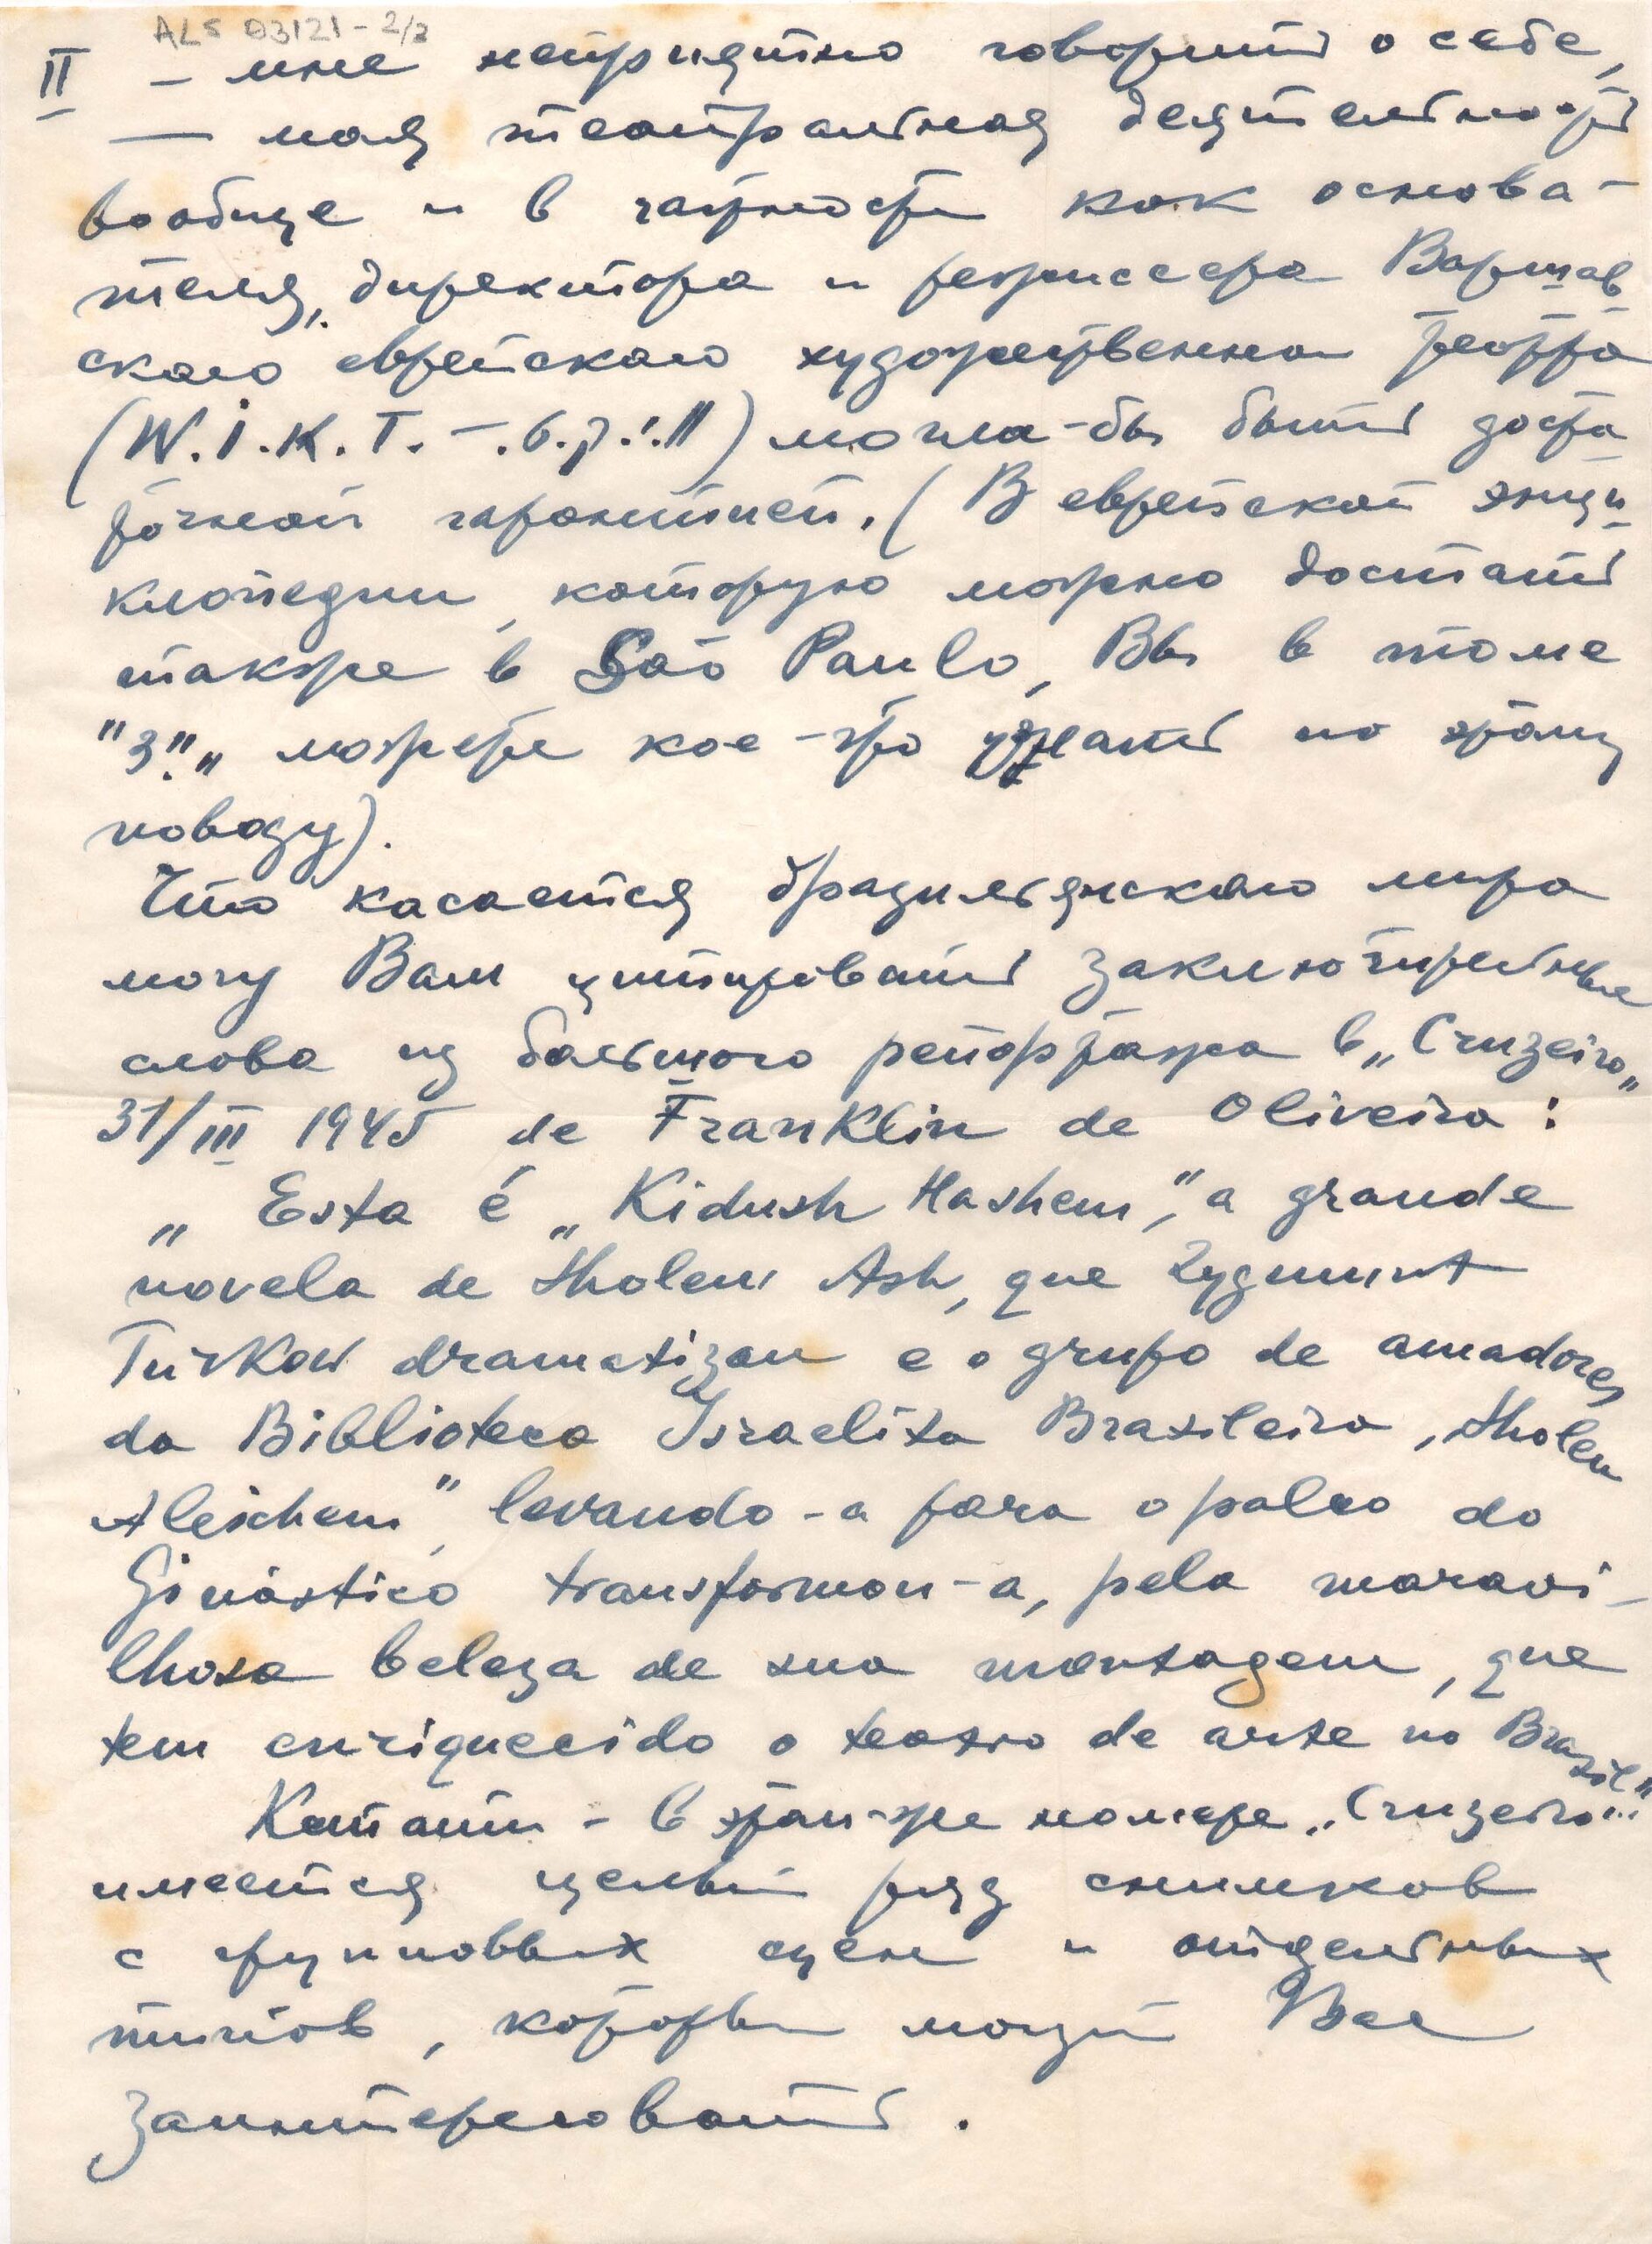 ALS 03121-2/3
II – мне неприятно говорить о себе,
— моя театральная деятельность
вообще и в частности как основа-
теля, директора и режиссера Варшав
ского еврейского художественного театра
(W.I.K.T. – ) могла-бы быть доста
точной гарантией. (В еврейской энци
клопедии, которую можно достать
также в Saõ Paulo, Вы в томе
"3" можете кое-что узнать по этому
поводу).
Что касается бразильянского мира
могу Вам цитировать заключительные
слова из большого репортажа в „Cruzeiro„
31/III 1945 de Franklin de Oliveira:
„ Esta é „Kidush Hashem", a grande
novela de Sholem Ash, que Zygmunt
Turkow dramatizou e o grupo de amadores
da Biblioteca Israelita Brasileira „Sholem
Aleichem" levando-a para o palco do
Ginástico transformou-a, pela maravi-
lhosa beleza de sua montagem, que
tem enriquecido o teatro de arte no Brazil"
Кстати – в этом-же номере „Cruzeiro"
имеется целый ряд снимков
с групповых сцен и отдельных
типов, которы могут Вас
заинтересовать.